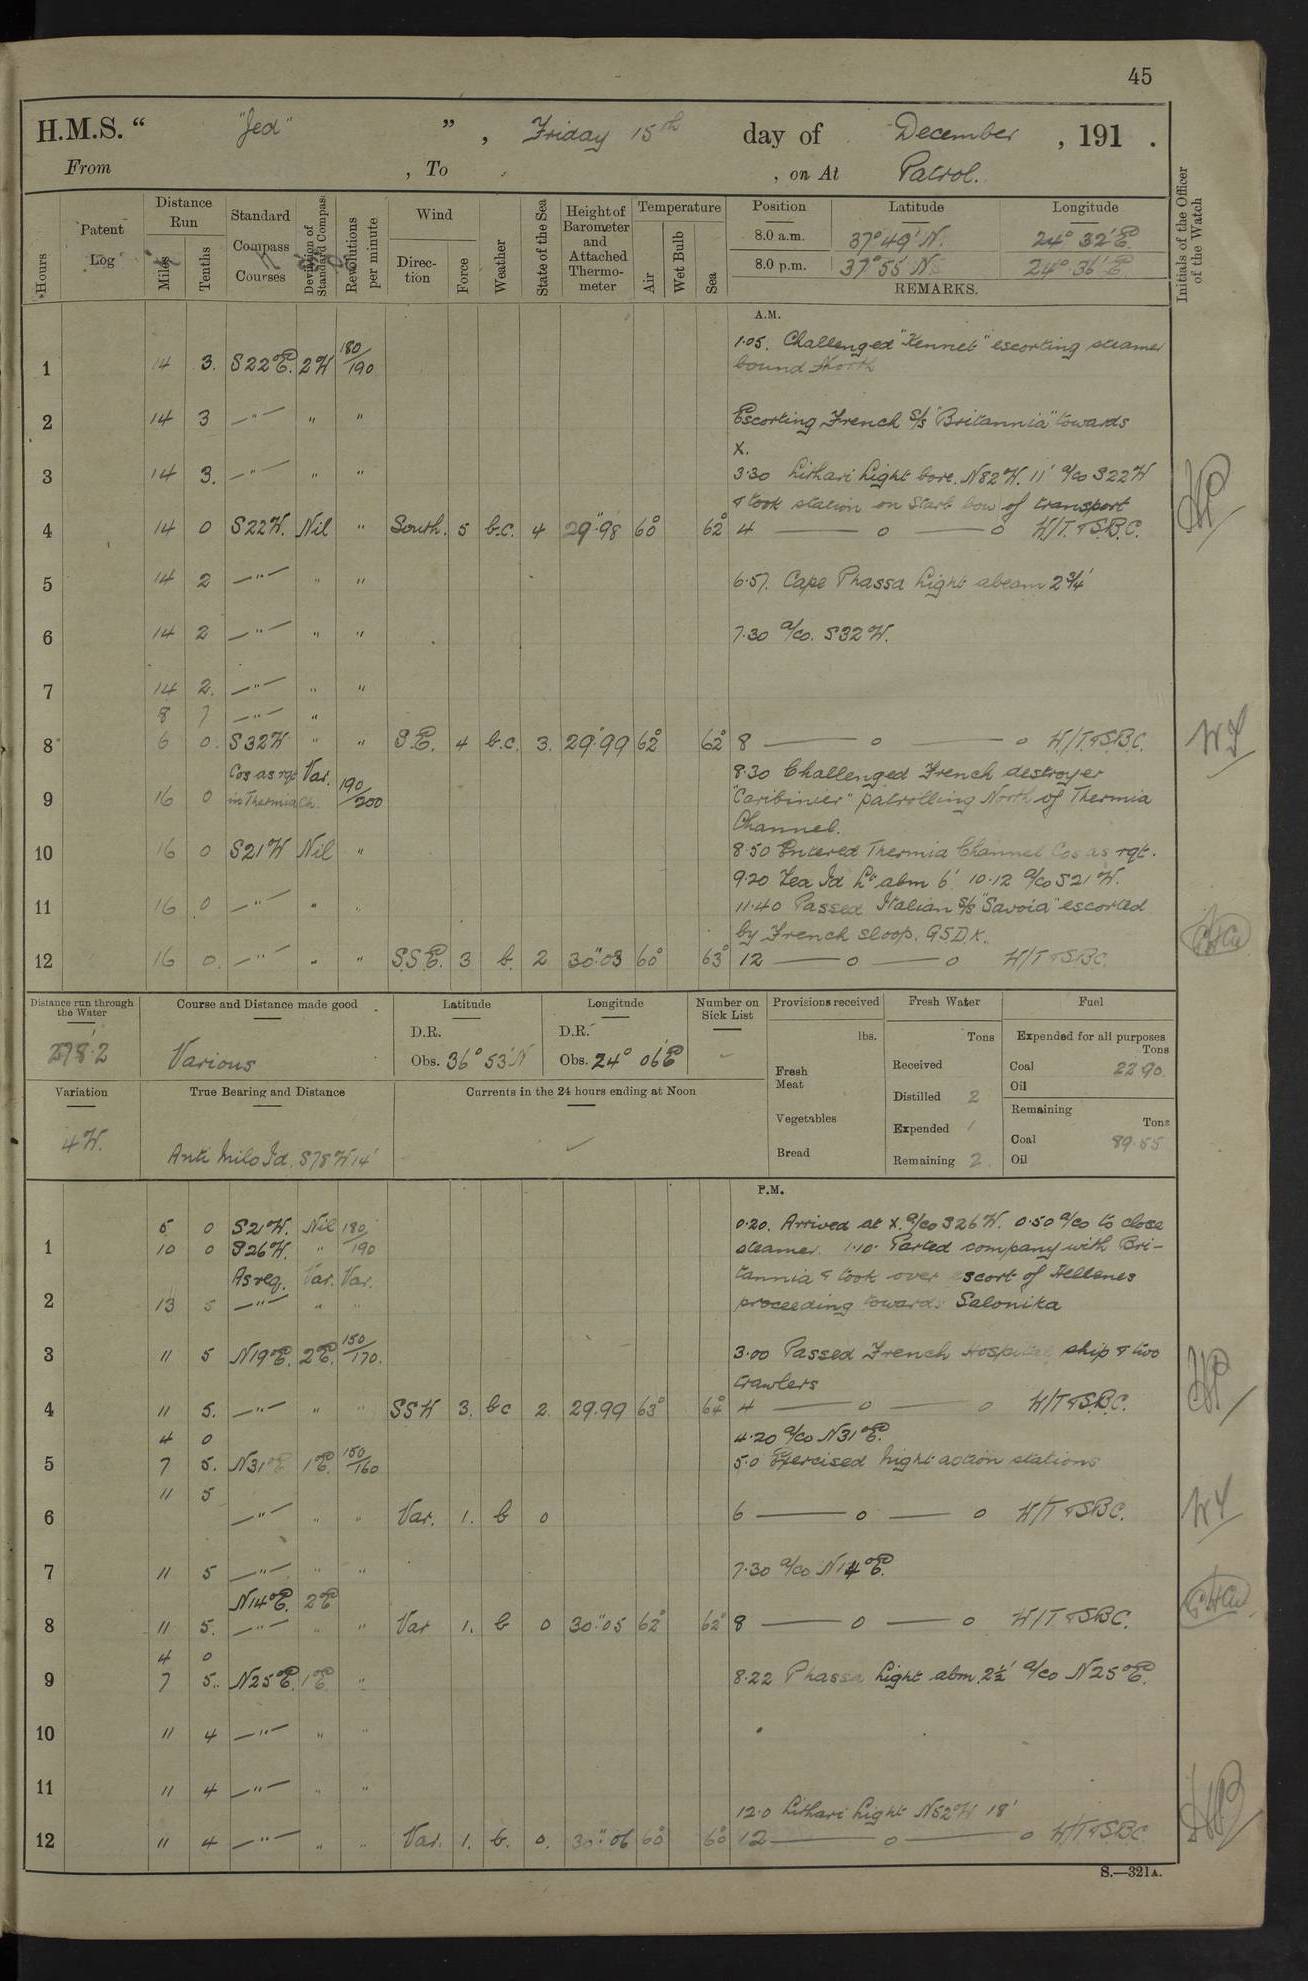 45
H.M.S. “ "Jed" ” , Friday 15th day of December , 191 .
From , To , on At Patrol.
Hours
Patent Log
Distance Run
Miles
Tenths
Standard Compass Courses
Deviation of Standard Compass
Revolutions per minute
Wind
Direction
Force
Weather
State of the Sea
Height of Barometer and Attached Thermometer
Temperature
Air
Wet Bulb
Sea
Position Latitude Longitude
8.0 a.m. 37° 49' N. 24° 32' E
8.0 p.m. 37° 55' N. 24° 36' E
REMARKS.
Initials of the Officer of the Watch
A.M.
1.05. Challenged "Kennet" escorting steamer
1 14 3. S22°E. 2W 180/190 bound North
2 14 3 —"— " " Escorting French S/S "Britannia" towards
X.
3 14 3. —"— " " 3.30 Lithari Light bore. N82W. 11' a/co S22W
& took station on Starb bow of transport
4 14 0 S22W. Nil " South. 5 b.c. 4 29"98 60° 62° 4 — o — o W/T. & S.B.C.
5 14 2 —"— " " 6.57. Cape Phassa Light abeam 2¾'
6 14 2 —"— " " 7.30 a/co. S32W.
7 14 2. —"— " "
8 7 —"— "
8 6 0. S32W " " S.E. 4 b.c. 3. 29.99 62° 62° 8 — o — o W/T. & S.B.C.
Cos as rqt Var. 8.30 Challenged French destroyer
9 16 0 in Thermia Ch. 190/200 "Caribinier" patrolling North of Thermia
Channel.
10 16 0 S21W Nil " 8.50 Entered Thermia Channel Cos as rqt.
9.20 Zea Id Lt abm 6' 10.12 a/co S21W.
11 16 0 —"— " " 11.40 Passed Italian S/S "Savoia" escorted
by French sloop. G5D.K.
12 16 0. —"— " " S.S.E. 3 b. 2 30"03 60° 63° 12 — o — o W/T & S.B.C.
Distance run through the Water
278.2
Course and Distance made good
Various
Latitude
D.R.
Obs. 36° 53' N
Longitude
D.R.
Obs. 24° 06' E
Number on Sick List
-
Provisions received
lbs.
Fresh Meat
Vegetables
Bread
Fresh Water
Tons
Received
Distilled 2
Expended 1
Remaining 2
Fuel
Expended for all purposes
Tons
Coal 22.90.
Oil
Remaining
Tons
Coal 89.55
Oil
Variation
4W.
True Bearing and Distance
Anti Milo Id. S78W 14'
Currents in the 24 hours ending at Noon
P.M.
5 0 S21W. Nil 180 0.20. Arrived at X. a/co S26W. 0.50 a/co to close
1 10 0 S26W. " /190 steamer. 1.10. Parted company with Bri-
As req. Var. Var. tannia & took over escort of Hellenes
2 13 5 —"— " " proceeding towards Salonika
3 11 5 N19°E. 2°E. 150/170. 3.00 Passed French Hospital ship & two
trawlers
4 11 5. —"— " " SSW 3. bc 2. 29.99 63° 64° 4 — o — o W/T & S.B.C.
4 0 4.20 a/co N31°E.
5 7 5. N31°E 1°E. 150/160 5.0 Exercised night action stations
11 5
6 —"— " " Var. 1. b 0 6 — o — o W/T & S.B.C.
7 11 5 —"— " " 7.30 a/co N14°E.
N14°E. 2°E
8 11 5. —"— " " Var 1. b 0 30"05 62° 62° 8 — o — o W/T & S.B.C.
4 0
9 7 5. N25°E. 1°E. " 8.22 Phassa Light abm. 2½' a/co N25°E.
10 11 4 —"— " "
11 11 4 —"— " "
12.0 Lithari Light N52W 18'
12 11 4 —"— " " Var. 1. b. 0. 30".06 60° 60° 12 — o — o W/T & S.B.C.
S.—321A.